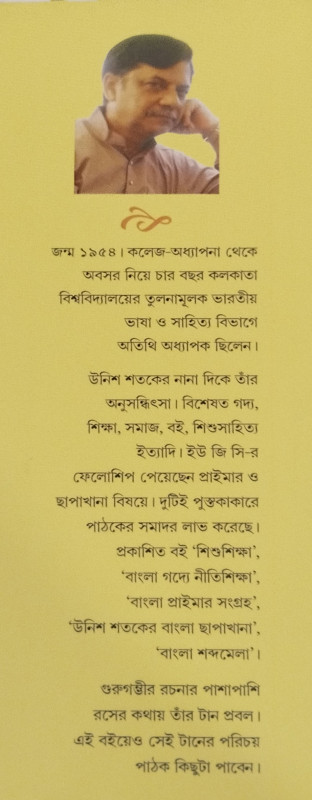 জন্ম ১৯৫৪। কলেজ-অধ্যাপনা থেকে
অবসর নিয়ে চার বছর কলকাতা
বিশ্ববিদ্যালয়ের তুলনামূলক ভারতীয়
ভাষা ও সাহিত্য বিভাগে
অতিথি অধ্যাপক ছিলেন।
উনিশ শতকের নানা দিকে তাঁর
অনুসন্ধিৎসা। বিশেষত গদ্য,
শিক্ষা, সমাজ, বই, শিশুসাহিত্য
ইত্যাদি। ইউ জি সি-র
ফেলোশিপ পেয়েছেন প্রাইমার ও
ছাপাখানা বিষয়ে। দুটিই পুস্তকাকারে
পাঠকের সমাদর লাভ করেছে।
প্রকাশিত বই ‘শিশুশিক্ষা’,
‘বাংলা গদ্যে নীতিশিক্ষা’,
‘বাংলা প্রাইমার সংগ্রহ’,
‘উনিশ শতকের বাংলা ছাপাখানা’,
‘বাংলা শব্দমেলা’।
গুরুগম্ভীর রচনার পাশাপাশি
রসের কথায় তাঁর টান প্রবল।
এই বইয়েও সেই টানের পরিচয়
পাঠক কিছুটা পাবেন।